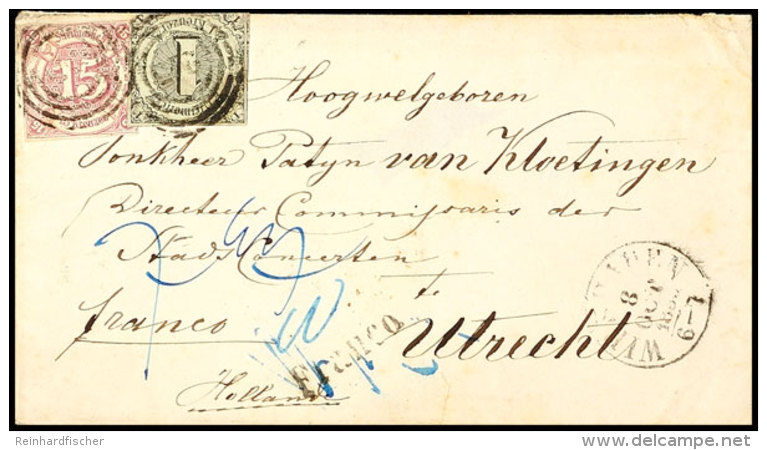 15
1
Hoogwelgeboren
Jonkheer Patyn van Kloetingen
Directeur Commissaris der
Stads Concerten
te
franco
Franco
Utrecht
Holland
WIESBADEN
8
OCT
1-9
Reinhardfischer
delcampe.net